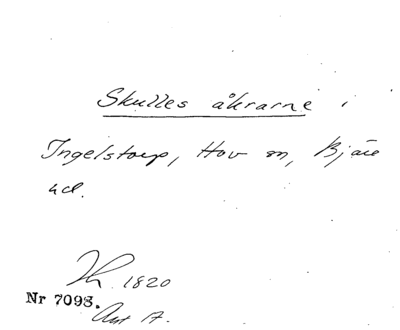 Skulles åkrarne i
Ingelstorp, Hov sn, Bjäre
hd.
1820
Nr 7098.
Akt 17.